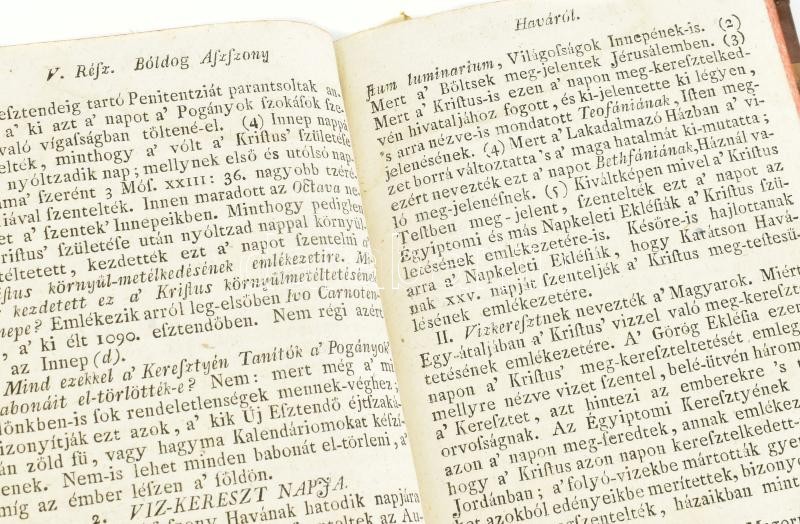 V. Réſz. Bóldog Aſzſzony
eſztendeig tartó Penitentziát parantsoltak an-
a' ki azt a' napot a' Pogányok ſzokáſok ſze-
való vígaſságban töltené-el. (4) Innep nappá
elték, minthogy a' vólt a' Kriſtus' ſzületése
nyóltzadik nap; mellynek első és utólsó nap-
ma' ſzerént 3 Móſ. XXIII: 36. nagyobb tzéré-
iával ſzentelték. Innen maradott az Octava ne-
et a' ſzentek' Innepeikben. Minthogy pediglen
riſtus' ſzületése után nyóltzad nappal környül-
téltetett, kezdették ezt a' napot ſzentelni a'
ſtus környül-metélkedésének emlékezetire. Mi-
kezdetett ez a' Kriſtus környülmetéltetésének
nepe? Emlékezik arról leg-elsőben Ivo Carnoten-
, a' ki élt 1090. eſztendőben. Nem régi azért
az Innep (d).
Mind ezekkel a' Kereſztyén Tanítók a' Pogányok'
abonáit el-törlötték-e? Nem: mert még a' mi
dőnkben-is ſok rendeletlenségek mennek-véghez;
bizonyítják ezt azok, a' kik Új Eſztendő éjtſzaká-
án zöld fű, vagy hagyma Kalendáriomokat kéſzí-
enek. Nem-is lehet minden babonát el-törleni, a'
míg az émber léſzen a' földön.
2. VIZ-KERESZT NAPJA.
ſzony Havának hatodik napjára
ſzentelték az Au-
Haváról.
ſtum luminarium, Világoſságok Innepének-is. (2)
Mert a' Bőltsek meg-jelentek Jérusálemben. (3)
Mert a' Kriſtus-is ezen a' napon meg-kereſztelked-
vén hivataljához fogott, és ki-jelentette ki légyen,
's arra nézve-is mondatott Teofániának, Iſten meg-
jelenésének. (4) Mert a' Lakadalmazó Házban a' vi-
zet borrá változtatta 's a' maga hatalmát ki-mutatta;
ezért nevezték ezt a' napot Bethfániának, Háznál va-
ló meg-jelenéſnek. (5) Kiváltképen mivel a' Kriſtus
Teſtben meg-jelent, ſzentelték ezt a' napot az
Egyiptomi és más Napkeleti Ekléſiák a' Kriſtus ſzü-
letésének emlékezetére-is. Későre-is hajlottanak
arra a' Napkeleti Ekléſiák, hogy Karátson Havá-
nak XXV. napját ſzenteljék a' Kriſtus meg-teſtesü-
lésének emlékezetére.
II. Vizkereſztnek nevezték a' Magyarok. Miért
Egy-átaljában a' Kriſtus' vizzel való meg-kereſzt-
tetésének emlékezetére. A' Görög Ekléſia ezen
napon a' Kriſtus' meg-kereſzteltetését emleg-
mellyre nézve vizet ſzentel, belé-ütvén három
a' Keresztet, azt hintezi az emberekre 's
orvoſságnak. Az Égyiptomi Kereſztyének
azon a' napon meg-feredtek, annak emlékez-
hogy a' Kriſtus azon napon kereſztelkedett-
Jordánban; a' folyó-vizekbe mártották gyer-
ket azokból edényeikbe merítettek, bizonyo-
megſzentelték, házaikban mint